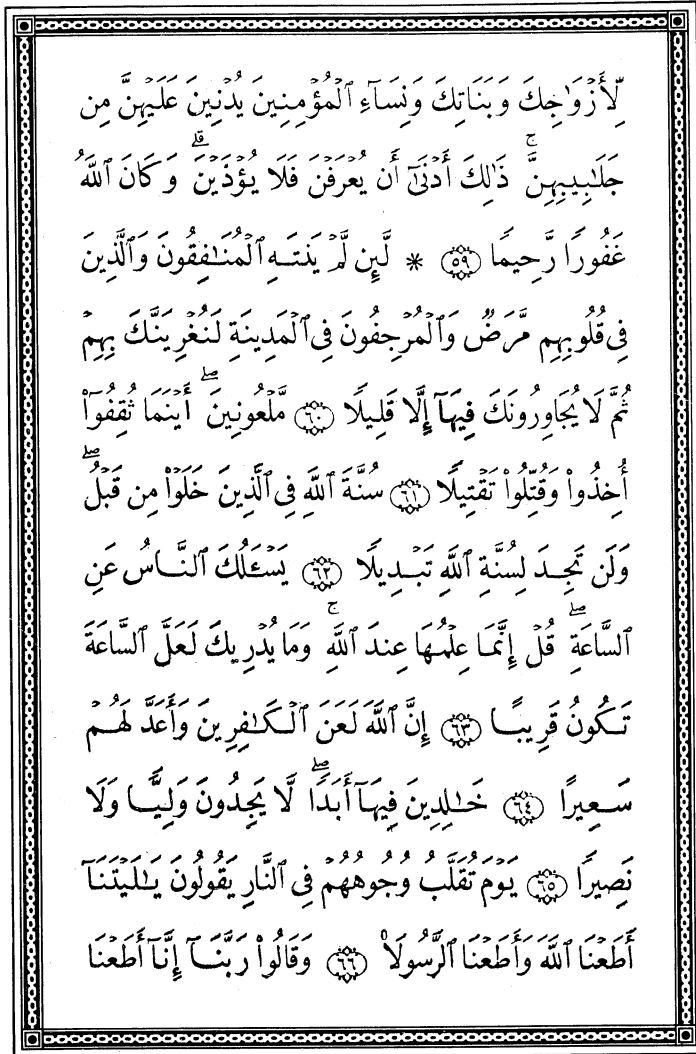 لِّأَزْوَٰجِكَ وَبَنَاتِكَ وَنِسَآءِ ٱلْمُؤْمِنِينَ يُدْنِينَ عَلَيْهِنَّ مِن
جَلَٰبِيبِهِنَّ ۚ ذَٰلِكَ أَدْنَىٰٓ أَن يُعْرَفْنَ فَلَا يُؤْذَيْنَ ۗ وَكَانَ ٱللَّهُ
غَفُورًا رَّحِيمًا ﴿٥٩﴾ * لَّئِن لَّمْ يَنتَهِ ٱلْمُنَٰفِقُونَ وَٱلَّذِينَ
فِى قُلُوبِهِم مَّرَضٌ وَٱلْمُرْجِفُونَ فِى ٱلْمَدِينَةِ لَنُغْرِيَنَّكَ بِهِمْ
ثُمَّ لَا يُجَاوِرُونَكَ فِيهَآ إِلَّا قَلِيلًا ﴿٦٠﴾ مَّلْعُونِينَ ۖ أَيْنَمَا ثُقِفُوٓا۟
أُخِذُوا۟ وَقُتِّلُوا۟ تَقْتِيلًا ﴿٦١﴾ سُنَّةَ ٱللَّهِ فِى ٱلَّذِينَ خَلَوْا۟ مِن قَبْلُ ۖ
وَلَن تَجِدَ لِسُنَّةِ ٱللَّهِ تَبْدِيلًا ﴿٦٢﴾ يَسْـَٔلُكَ ٱلنَّاسُ عَنِ
ٱلسَّاعَةِ ۖ قُلْ إِنَّمَا عِلْمُهَا عِندَ ٱللَّهِ ۚ وَمَا يُدْرِيكَ لَعَلَّ ٱلسَّاعَةَ
تَكُونُ قَرِيبًا ﴿٦٣﴾ إِنَّ ٱللَّهَ لَعَنَ ٱلْكَٰفِرِينَ وَأَعَدَّ لَهُمْ
سَعِيرًا ﴿٦٤﴾ خَٰلِدِينَ فِيهَآ أَبَدًا ۖ لَّا يَجِدُونَ وَلِيًّا وَلَا
نَصِيرًا ﴿٦٥﴾ يَوْمَ تُقَلَّبُ وُجُوهُهُمْ فِى ٱلنَّارِ يَقُولُونَ يَٰلَيْتَنَآ
أَطَعْنَا ٱللَّهَ وَأَطَعْنَا ٱلرَّسُولَا۠ ﴿٦٦﴾ وَقَالُوا۟ رَبَّنَآ إِنَّآ أَطَعْنَا